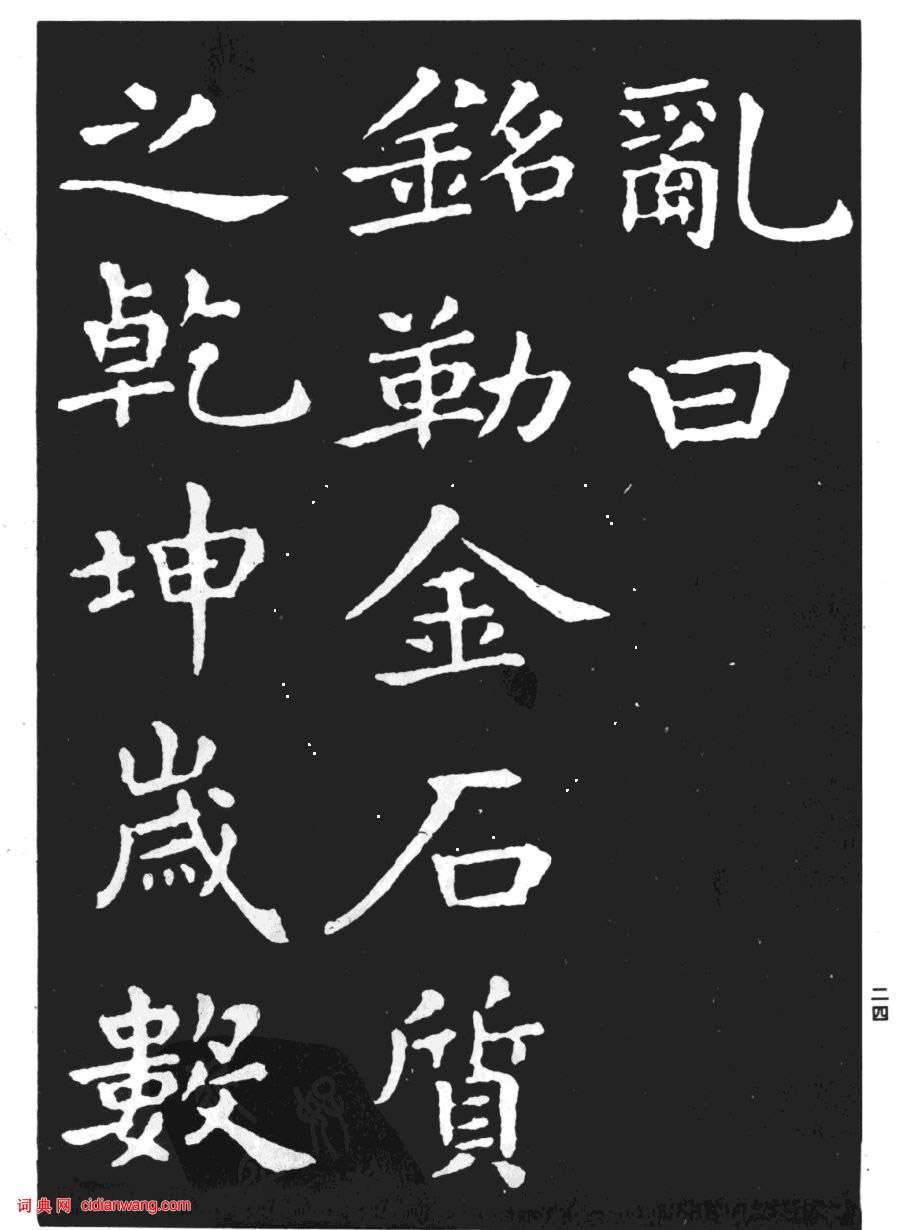 亂曰
銘勒金石質
之乾坤歲數
二四
词典网 cidianwang.com